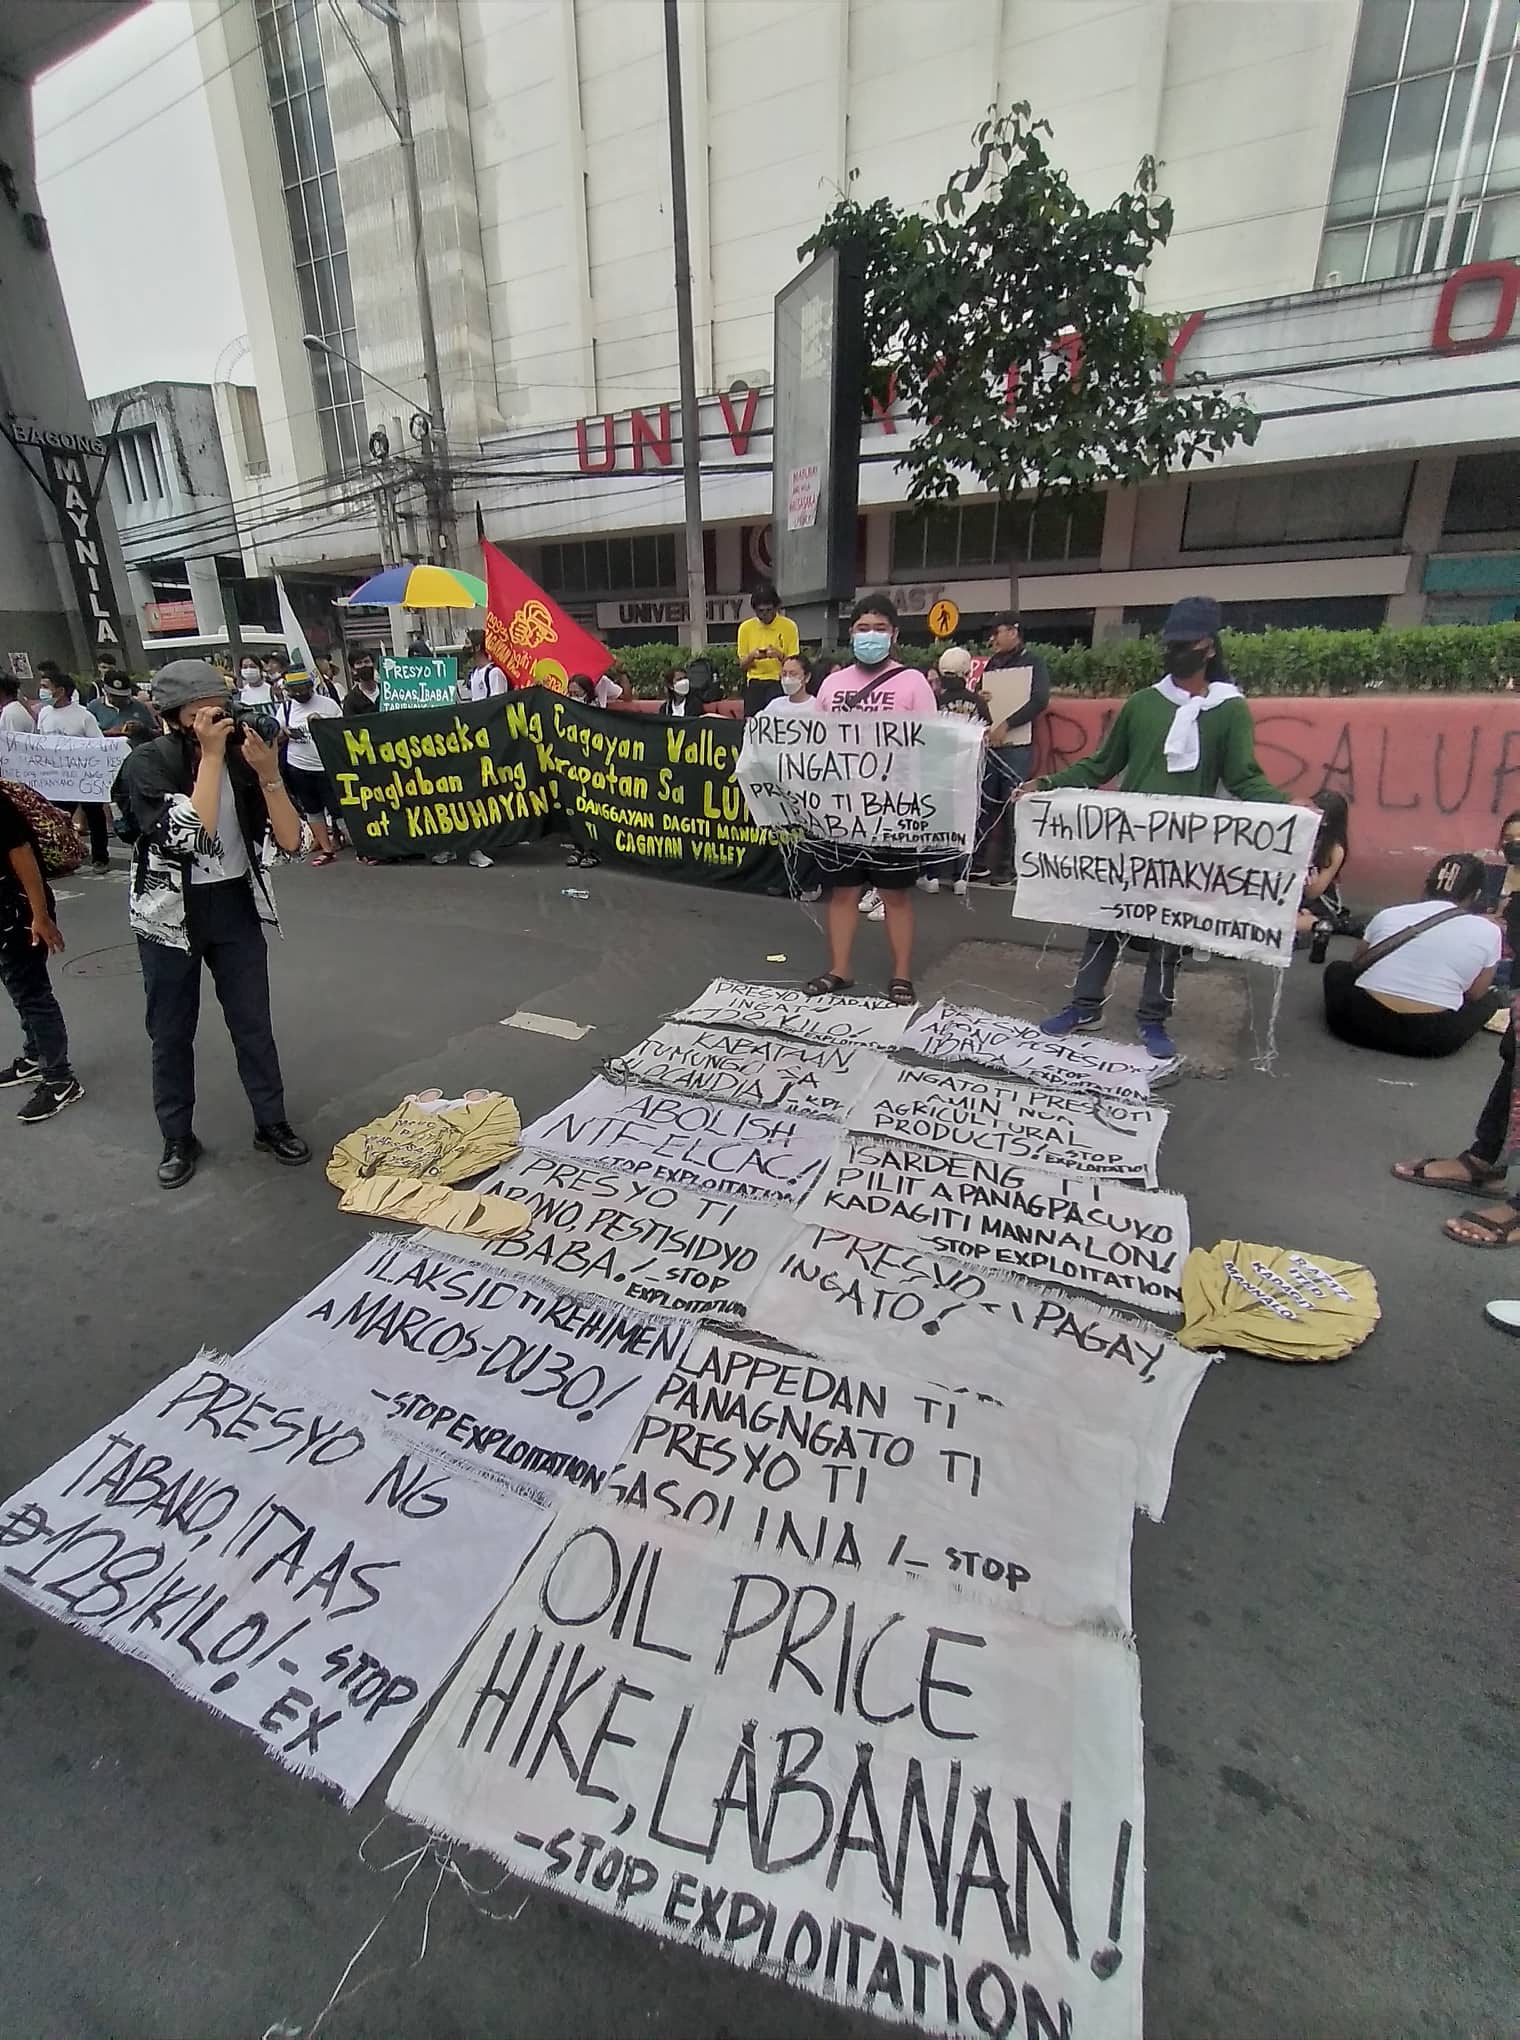 BAGONG
MAYNILA
UNIV
Y O
UNIVERSITY
EAST
PRESYO TI
BAGAS, IBABA!
Magsasaka Ng Cagayan Valley
Ipaglaban Ang Karapatan Sa LU
at KABUHAYAN!
DANGGAYAN DAGITI MANNA
TI
CAGAYAN VALLEY
SERVE
PRESYO TI IRIK
INGATO!
PRESYO TI BAGAS
IBABA! - STOP
EXPLOITATION
7th IDPA-PNP PRO1
SINGIREN, PATAKYASEN!
-STOP EXPLOITATION
SALUP
PRESYO TI TABAKO
INGAT
128/KILO!
EXPLOITATION
PRESYO
ABONO, PESTESIDYO
STOP
EXPLOITATION
KABATAAN
TUMUNGO SA
ILOCANDIA!
INGATO TI PRESYO TI
AMIN NGA
AGRICULTURAL
PRODUCTS! - STOP
EXPLOITATION
ABOLISH
NTF-ELCAC!
STOP EXPLOITATION
ISARDENG TI
PILIT A PANAGPASUKO
KADAGITI MANNALON!
-STOP EXPLOITATION
PRESYO TI
ABONO, PESTISIDYO
IBABA! - STOP
EXPLOITATION
PRESYO TI PAGAY,
INGATO!
ILAKSID TI REHIMEN
A MARCOS-DU30!
-STOP EXPLOITATION
LAPPEDAN TI
PANAGNGATO TI
PRESYO TI
GASOLINA! - STOP
PRESYO NG
TABAKO, ITAAS
₱128/KILO! - STOP
EX
OIL PRICE
HIKE, LABANAN!
-STOP EXPLOITATION